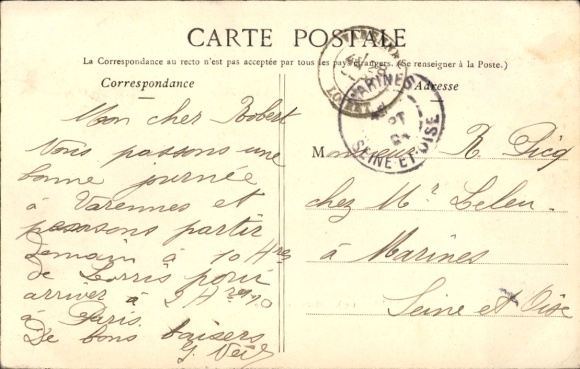 CARTE POSTALE
La Correspondance au recto n'est pas acceptée par tous les pays étrangers. (Se renseigner à la Poste.)
Correspondance
Adresse
Mon cher Robert
Nous passons une
bonne journée
à Varennes et
pensons partir
demain à 10 Hres
de Lorris pour
arriver à 2 H
à Paris.
De bons baisers
Monsieur R. Picq
chez Mr Leleu.
à Marines
Seine et Oise
LOIRET
MARINES
SEINE ET OISE